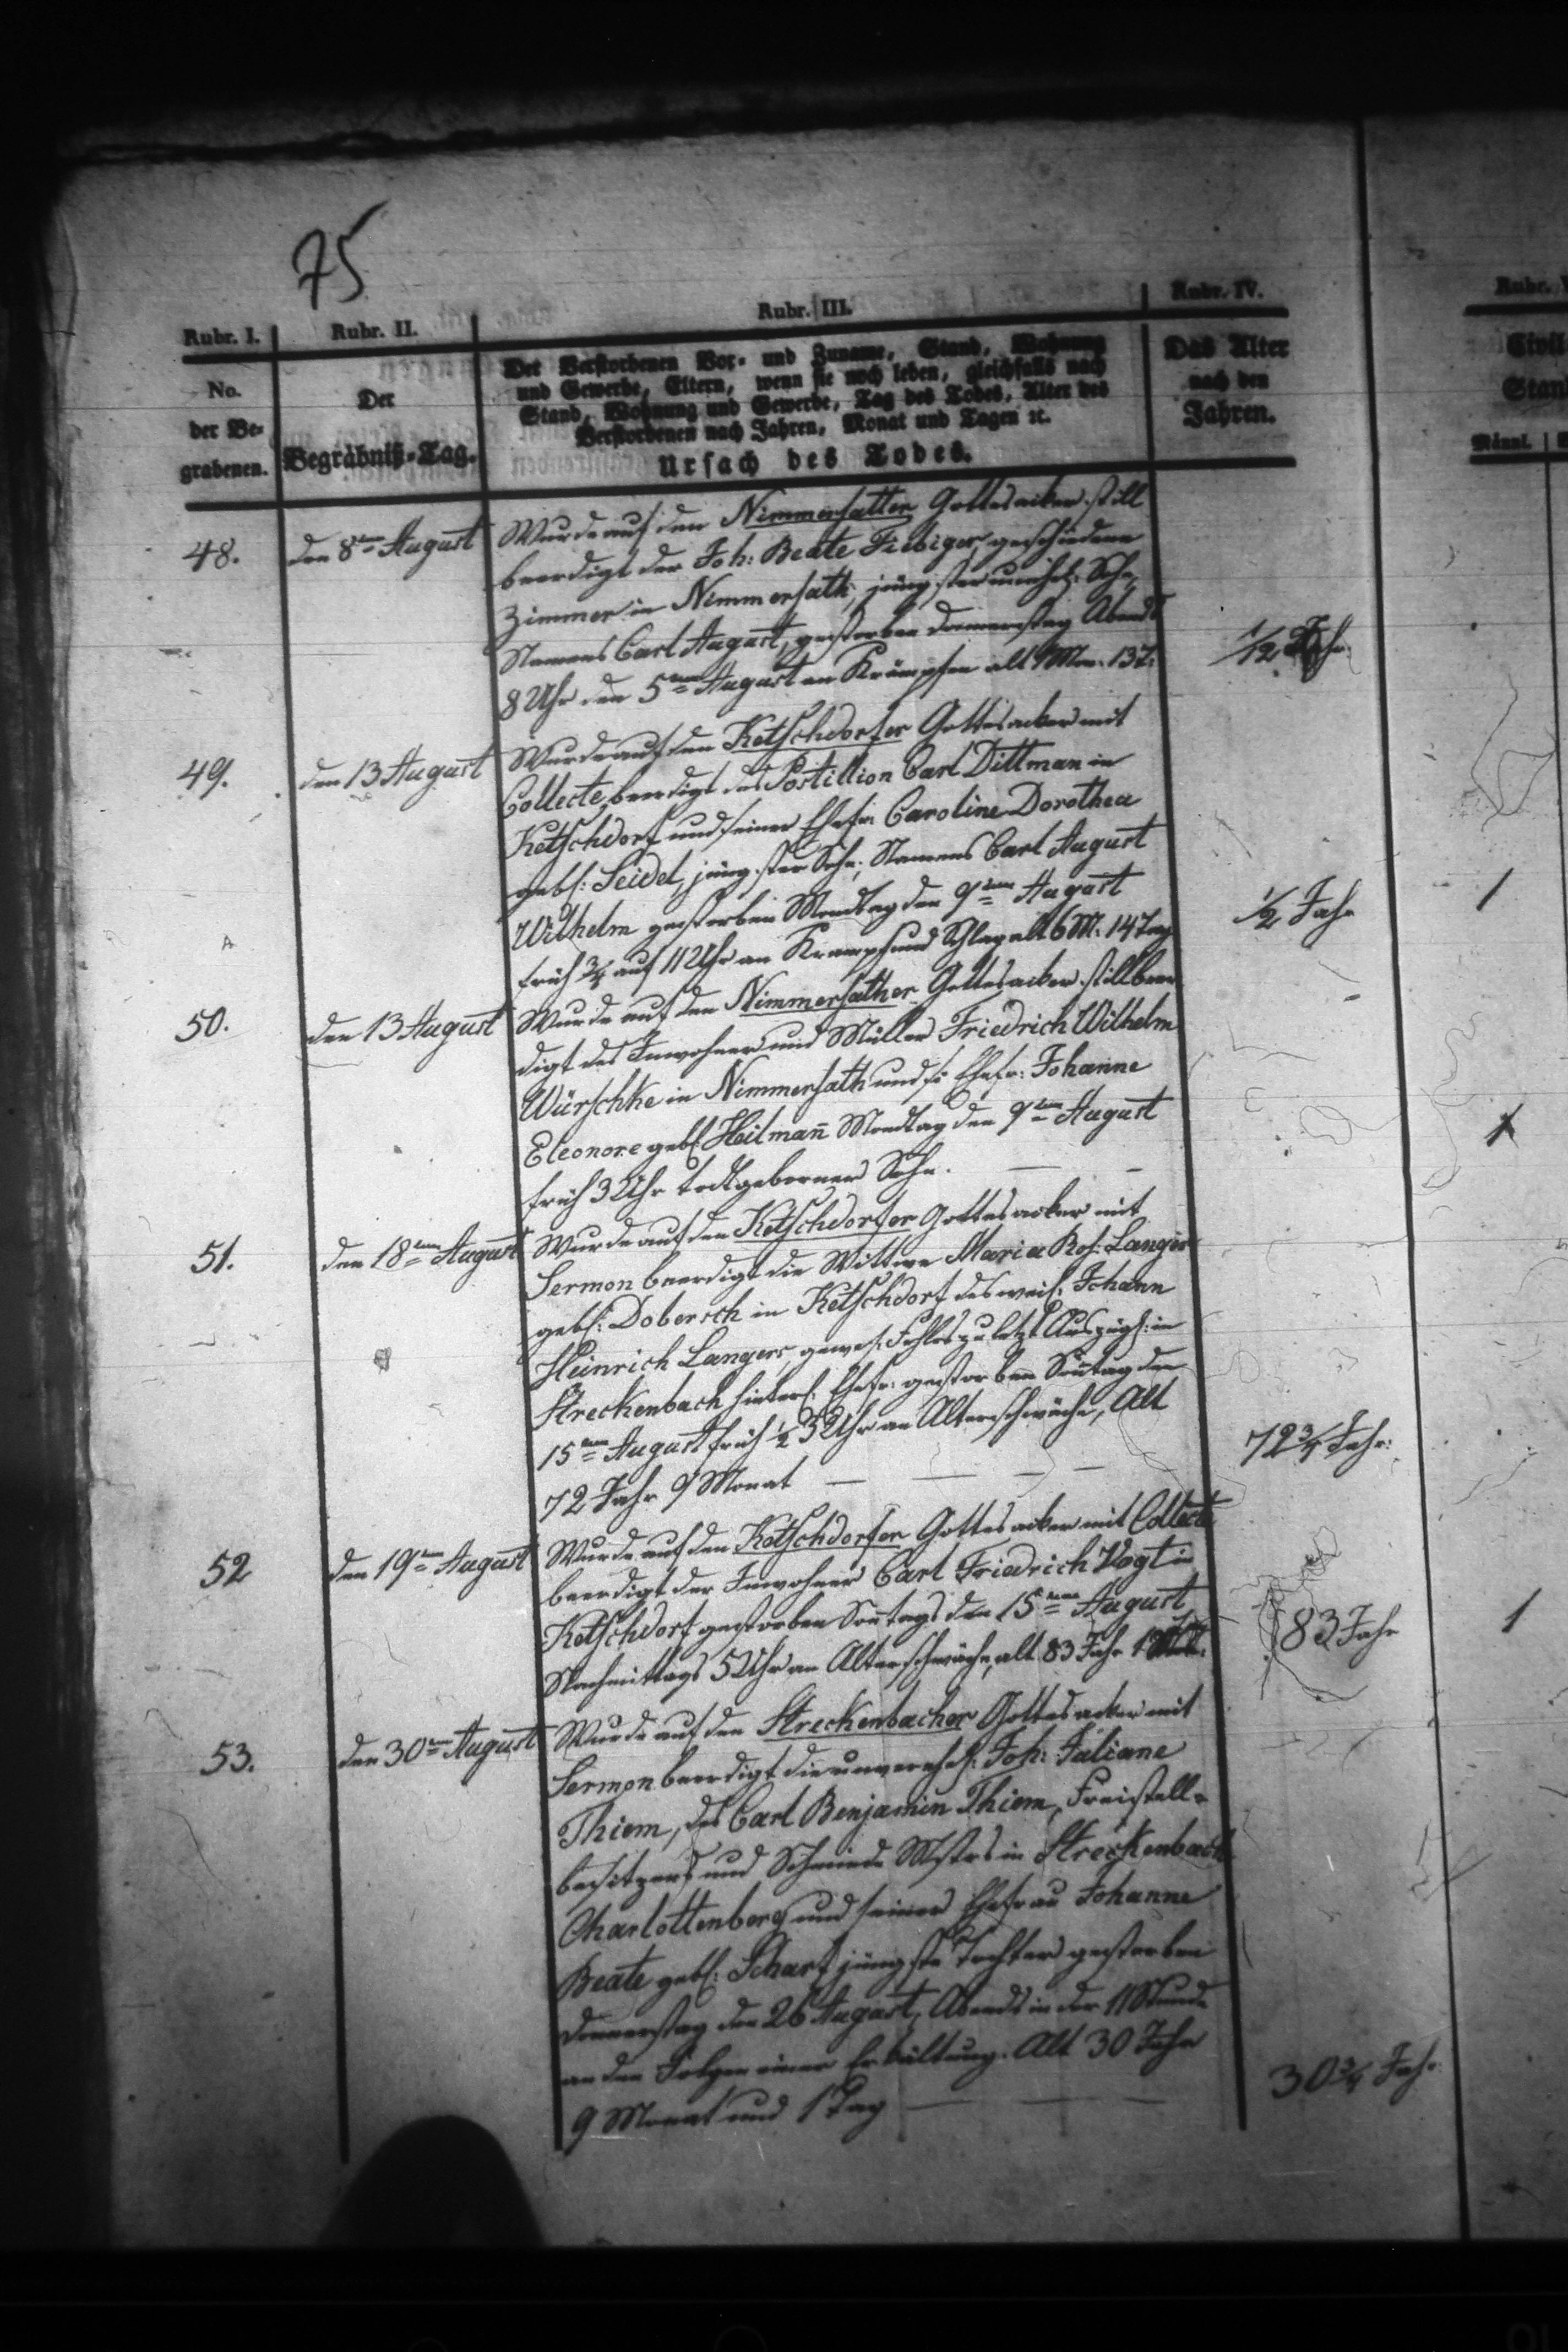 75
Rubr. I.
Rubr. II.
Rubr. III.
Rubr. IV.
Rubr.
No.
der Be-
grabenen.
Der
Begräbniß-Tag.
Der Verstorbenen Vor- und Zuname, Stand, Wohnung
und Gewerbe, Eltern, wenn sie noch leben, gleichfalls nach
Stand, Wohnung und Gewerbe, Tag des Todes, Alter des
Verstorbenen nach Jahren, Monat und Tagen ꝛc.
Ursach des Todes.
Das Alter
nach den
Jahren.
Civil
Stan
Männl.
48.
den 8ten August
Wurde auf den Nimmersatter Gottesacker still
beerdigt der Joh: Beate Fiebiger, geschiedene
Zimmer in Nimmersath, jüngster unehel: Sohn,
Namens Carl August, gestorben Donnerstag Abends
8 Uhr den 5ten August an Krämpfen alt Mon. 13 T.
1/2 Jahr.
49.
den 13 August
Wurde auf den Ketschdorfer Gottesacker mit
Collecte beerdigt des Postillion Carl Dittman in
Ketschdorf und seiner Ehefr: Caroline Dorothea
geb: Seidel, jüngster Sohn, Namens Carl August
Wilhelm gestorben Montag den 9ten August
früh 3/4 auf 11 Uhr an Krampf und Schlag alt 6 M. 14 Tag
1/2 Jahr
1
50.
den 13 August
Wurde auf den Nimmersather Gottesacker still beer
digt des Inwohner und Müller Friedrich Wilhelm
Würschke in Nimmersath und s: Ehefr: Johanne
Eleonore geb: Heilmañ Montag den 9ten August
früh 3 Uhr todtgeborner Sohn.
1
51.
den 18ten August
Wurde auf den Ketschdorfer Gottesacker mit
Sermon beerdigt die Wittwe Maria Ros: Langer
geb: Dobersch in Ketschdorf des weil: Johann
Heinrich Langers, gewes. zuletzt Auszügl: in
Streckenbach hinterl: Ehefr: gestorben Soñtag den
15ten August früh 1/2 3 Uhr an Altersschwäche, Alt
72 Jahr 9 Monat
72 3/4 Jahr:
52
den 19ten August
Wurde auf den Ketschdorfer Gottesacker mit Collecte
beerdigt der Inwohner Carl Friedrich Vogt in
Ketschdorf gestorben Soñtags den 15ten August
Nachmittags 5 Uhr an Altersschwäche, alt 83 Jahr
83 Jahr
1
53.
den 30ten August
Wurde auf den Streckenbacher Gottesacker mit
Sermon beerdigt die unverehel: Joh: Juliane
Thiem, des Carl Benjamin Thiem, Freistell-
besitzers und Schmiede Mstrs in Streckenbach
Charlottenberg und seiner Ehefrau Johanne
Beate geb: Scharf jüngste Tochter gestorben
Donnerstag den 26 August, Abends in der 11 Stunde
an den Folgen einer Erkältung. Alt 30 Jahr
9 Monat und 1 Tag
30 3/4 Jahr